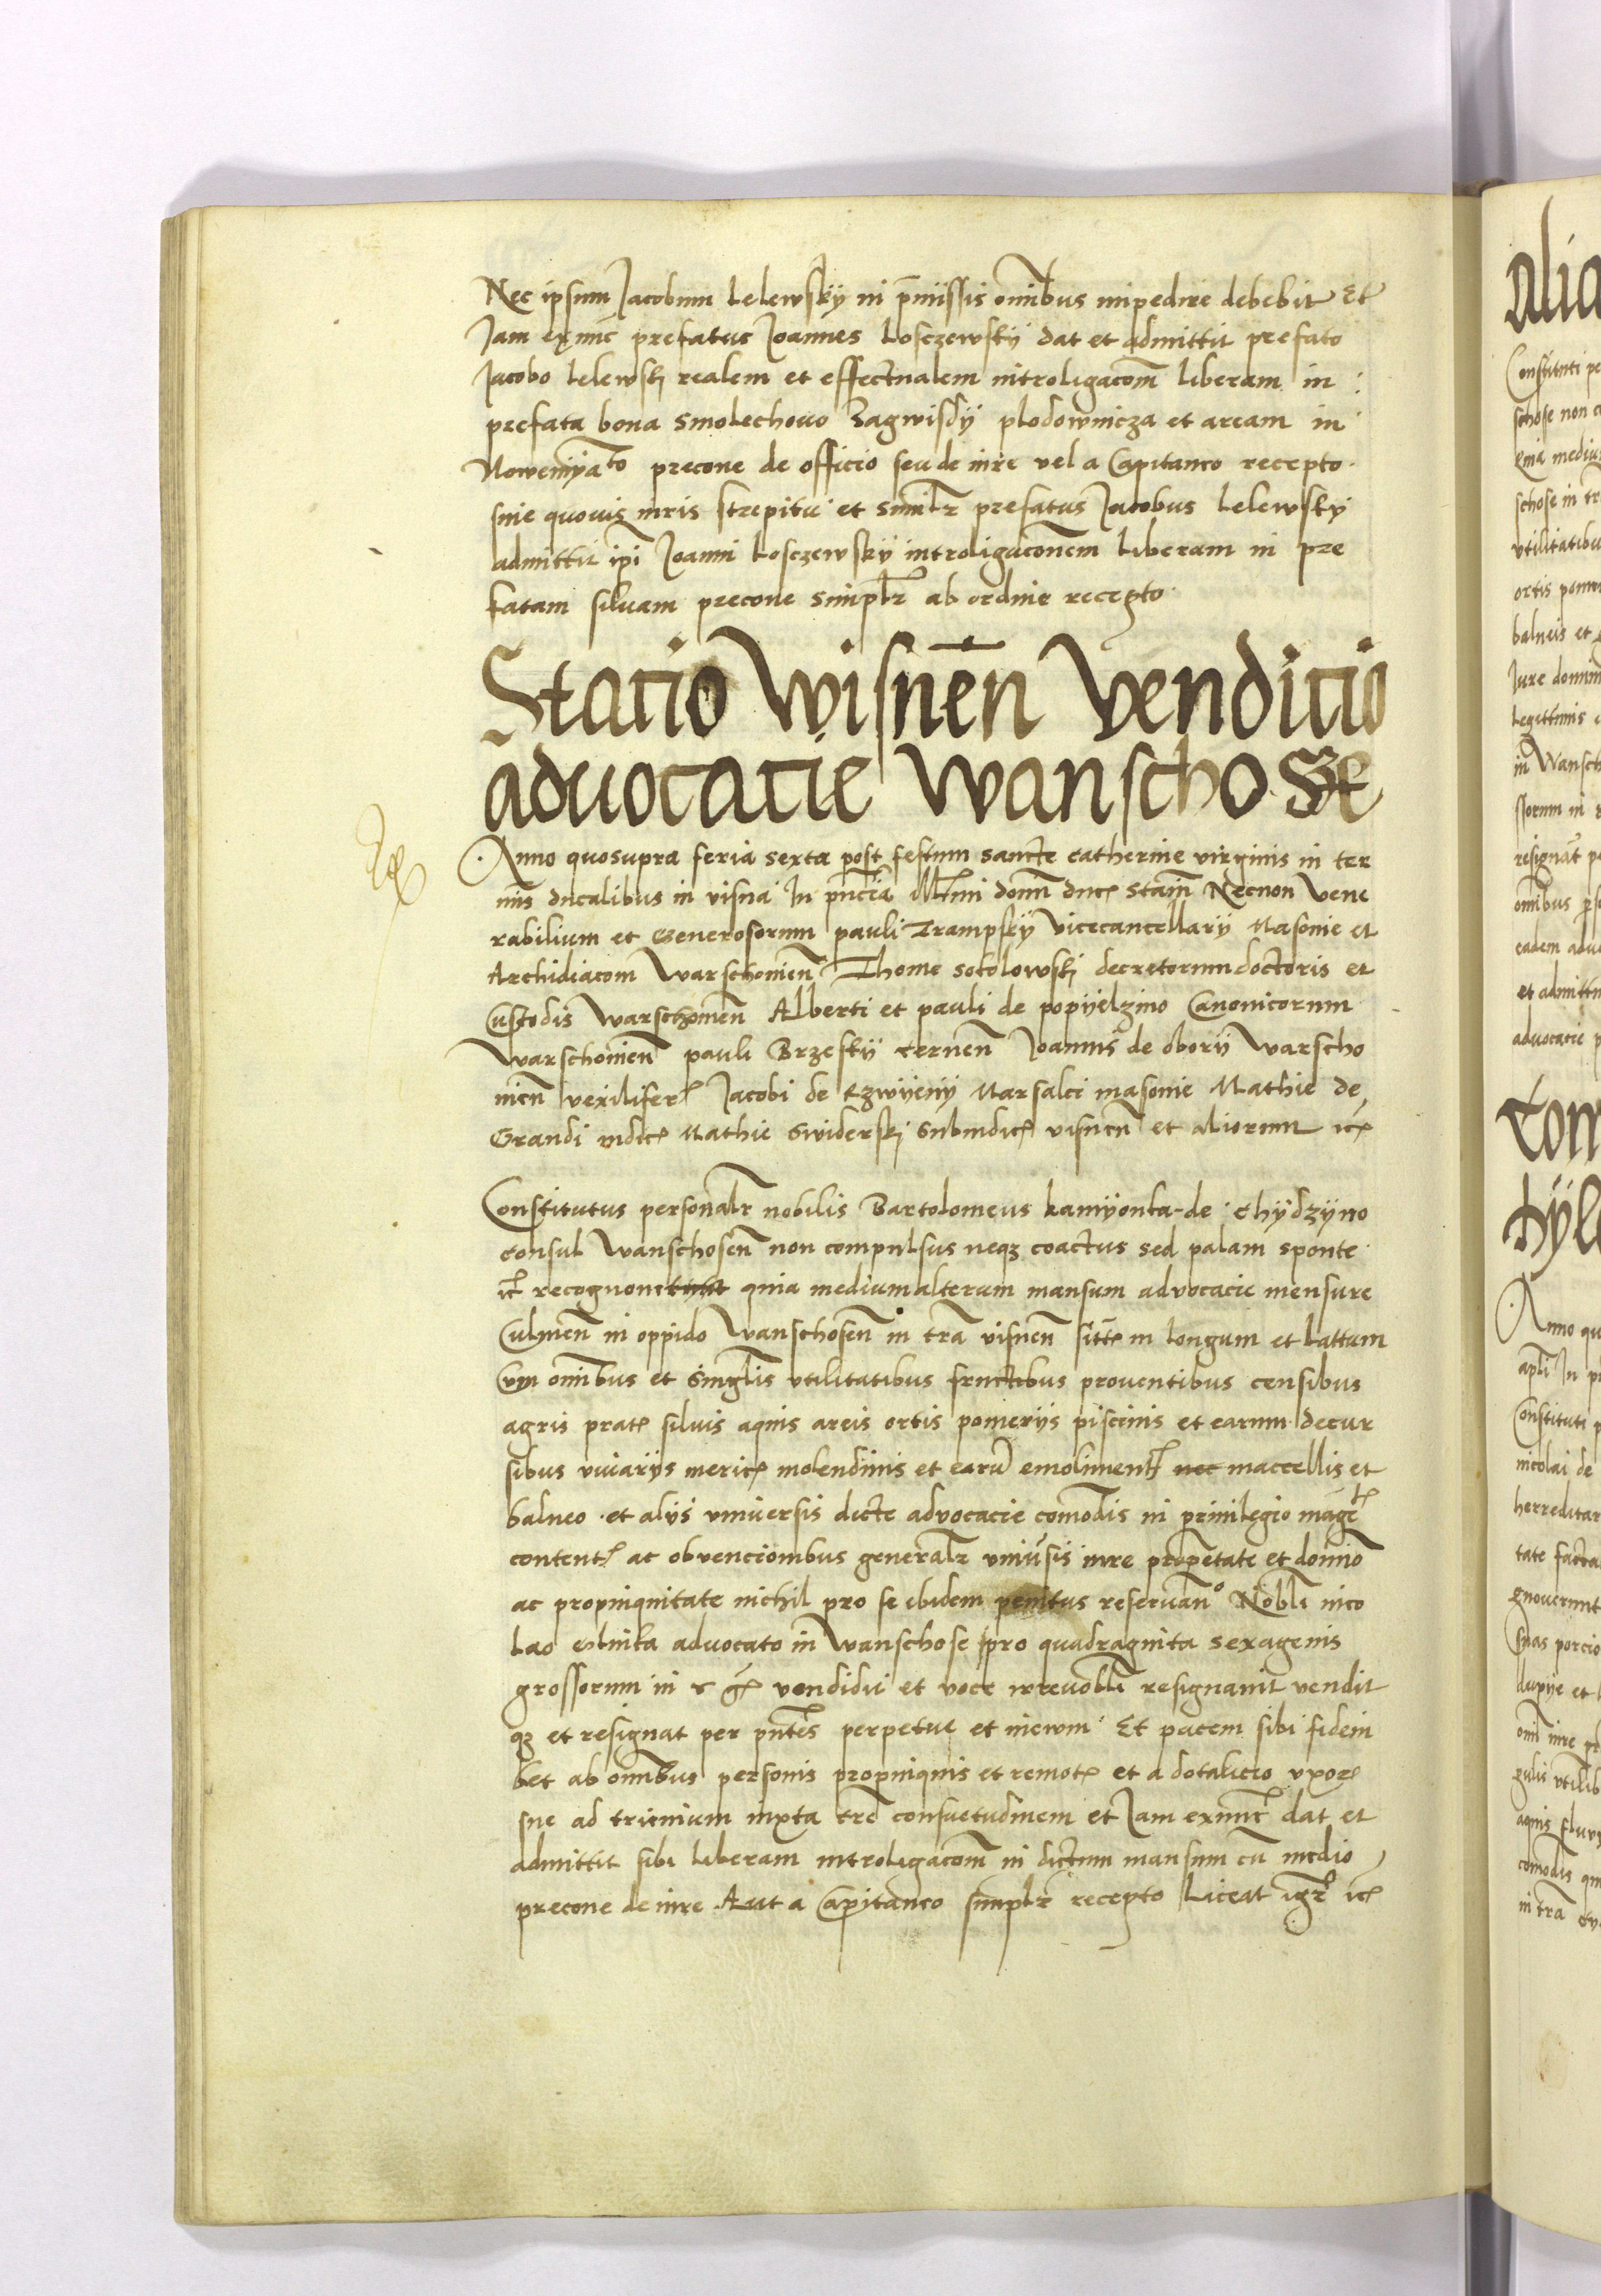 Nec ipsum Jacobum Lelewskÿ in p̄missis om̄ibus impedire debebit Et
Jam exnūc prefatus Joannes Losczewskÿ dat et admittit prefato
Jacobo Lelewski realem et effectualem introligacōm liberam in
prefata bona Smolechovo Zagwisdÿ plodownicza et aream in
precone de officio seu de iure vel a Capitaneo recepto
sine quovis iuris strepitu et simil̄r prefatus Jacobus Lelewskÿ
admittit ip̄i Joanni Losczewskÿ introligaconem liberam in pre
fatam silvam precone simpl̄r ab ordine recepto
Stacio Wisnen̄ Vendicio
advocacie Wanschosze
Anno quosupra feria sexta post festum sancte Catherine virginis in ter
mīs ducalibus in visna In pn̄cia Ill̄mi domī ducꝭ Stan̄i Necnon Vene
rabilium et Generosorum pauli Trampskÿ Vicecancellarÿ Masovie et
Archidiaconi Warschovien̄ Thome Sokolowski decretorum doctoris et
Custodis Warschovien̄ Alberti et pauli de popÿelzino Canonicorum
Warschovien̄ pauli Brzeskÿ cernen̄ Joannis de oborÿ Warscho
vien̄ vexiliferꝭ Jacobi de Rzwÿenÿ Marsalci masovie Mathie de
Grandi iudicꝭ Mathie Swiderski Subiudicꝭ visnen̄ et aliorum ic̄ꝭ
Constitutus personalr̄ nobilis Bartolomeus kamÿonka de Chÿdzÿno
consul Wanschosen̄ non compulsus neqꝫ coactus sed palam sponte
ic̄ꝭ recognovit quia medium alterum mansum advocacie mensure
Culmen̄ in oppido Wanschosen̄ in tr̄a visnen̄ sitū in longum et lattum
Cum om̄ibus et singl̄is utilitatibus fructibus proventibus censibus
agris pratꝭ silvis aquis areis ortis pomerijs piscinis et earum decur
sibus vivarÿs mericꝭ molendinis et earū emolimentꝭ nec maccellis et
balneo et alÿs universis dicte advocacie comodis in privilegio magꝭ
contentꝭ ac obvencionibus generalr̄ univ̄sis iure propetate et domīo
ac propinquitate nichil pro se ibidem penitus reservan̄° Nobl̄i nico
lao advocato in Wanschose pro quadraginta sexagenis
grossorum in vendidit et voce irrevobl̄i resignavit vendit
qꝫ et resignat per pn̄tes perpetue et inewm Et pacem sibi fidein
bet ab om̄ibus personis propinquis et remotꝭ et a dotalicio vxorꝭ
sue ad trienium iuxta tr̄e consuetudinem et Jam exnūc dat et
admittit sibi liberam introligacōm in dictum mansum cū medio
precone de iure Aut a Capitaneo simplr̄ recepto Liceat igr̄ ic̄ꝭ